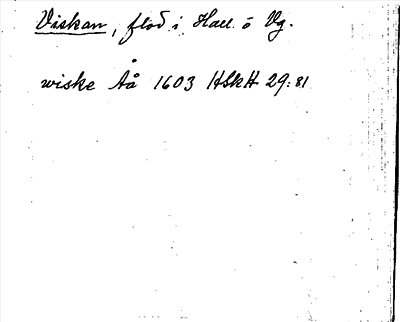 Viskan, flod i Hall. o Vg.
wiske Åå 1603 HSkH 29:81